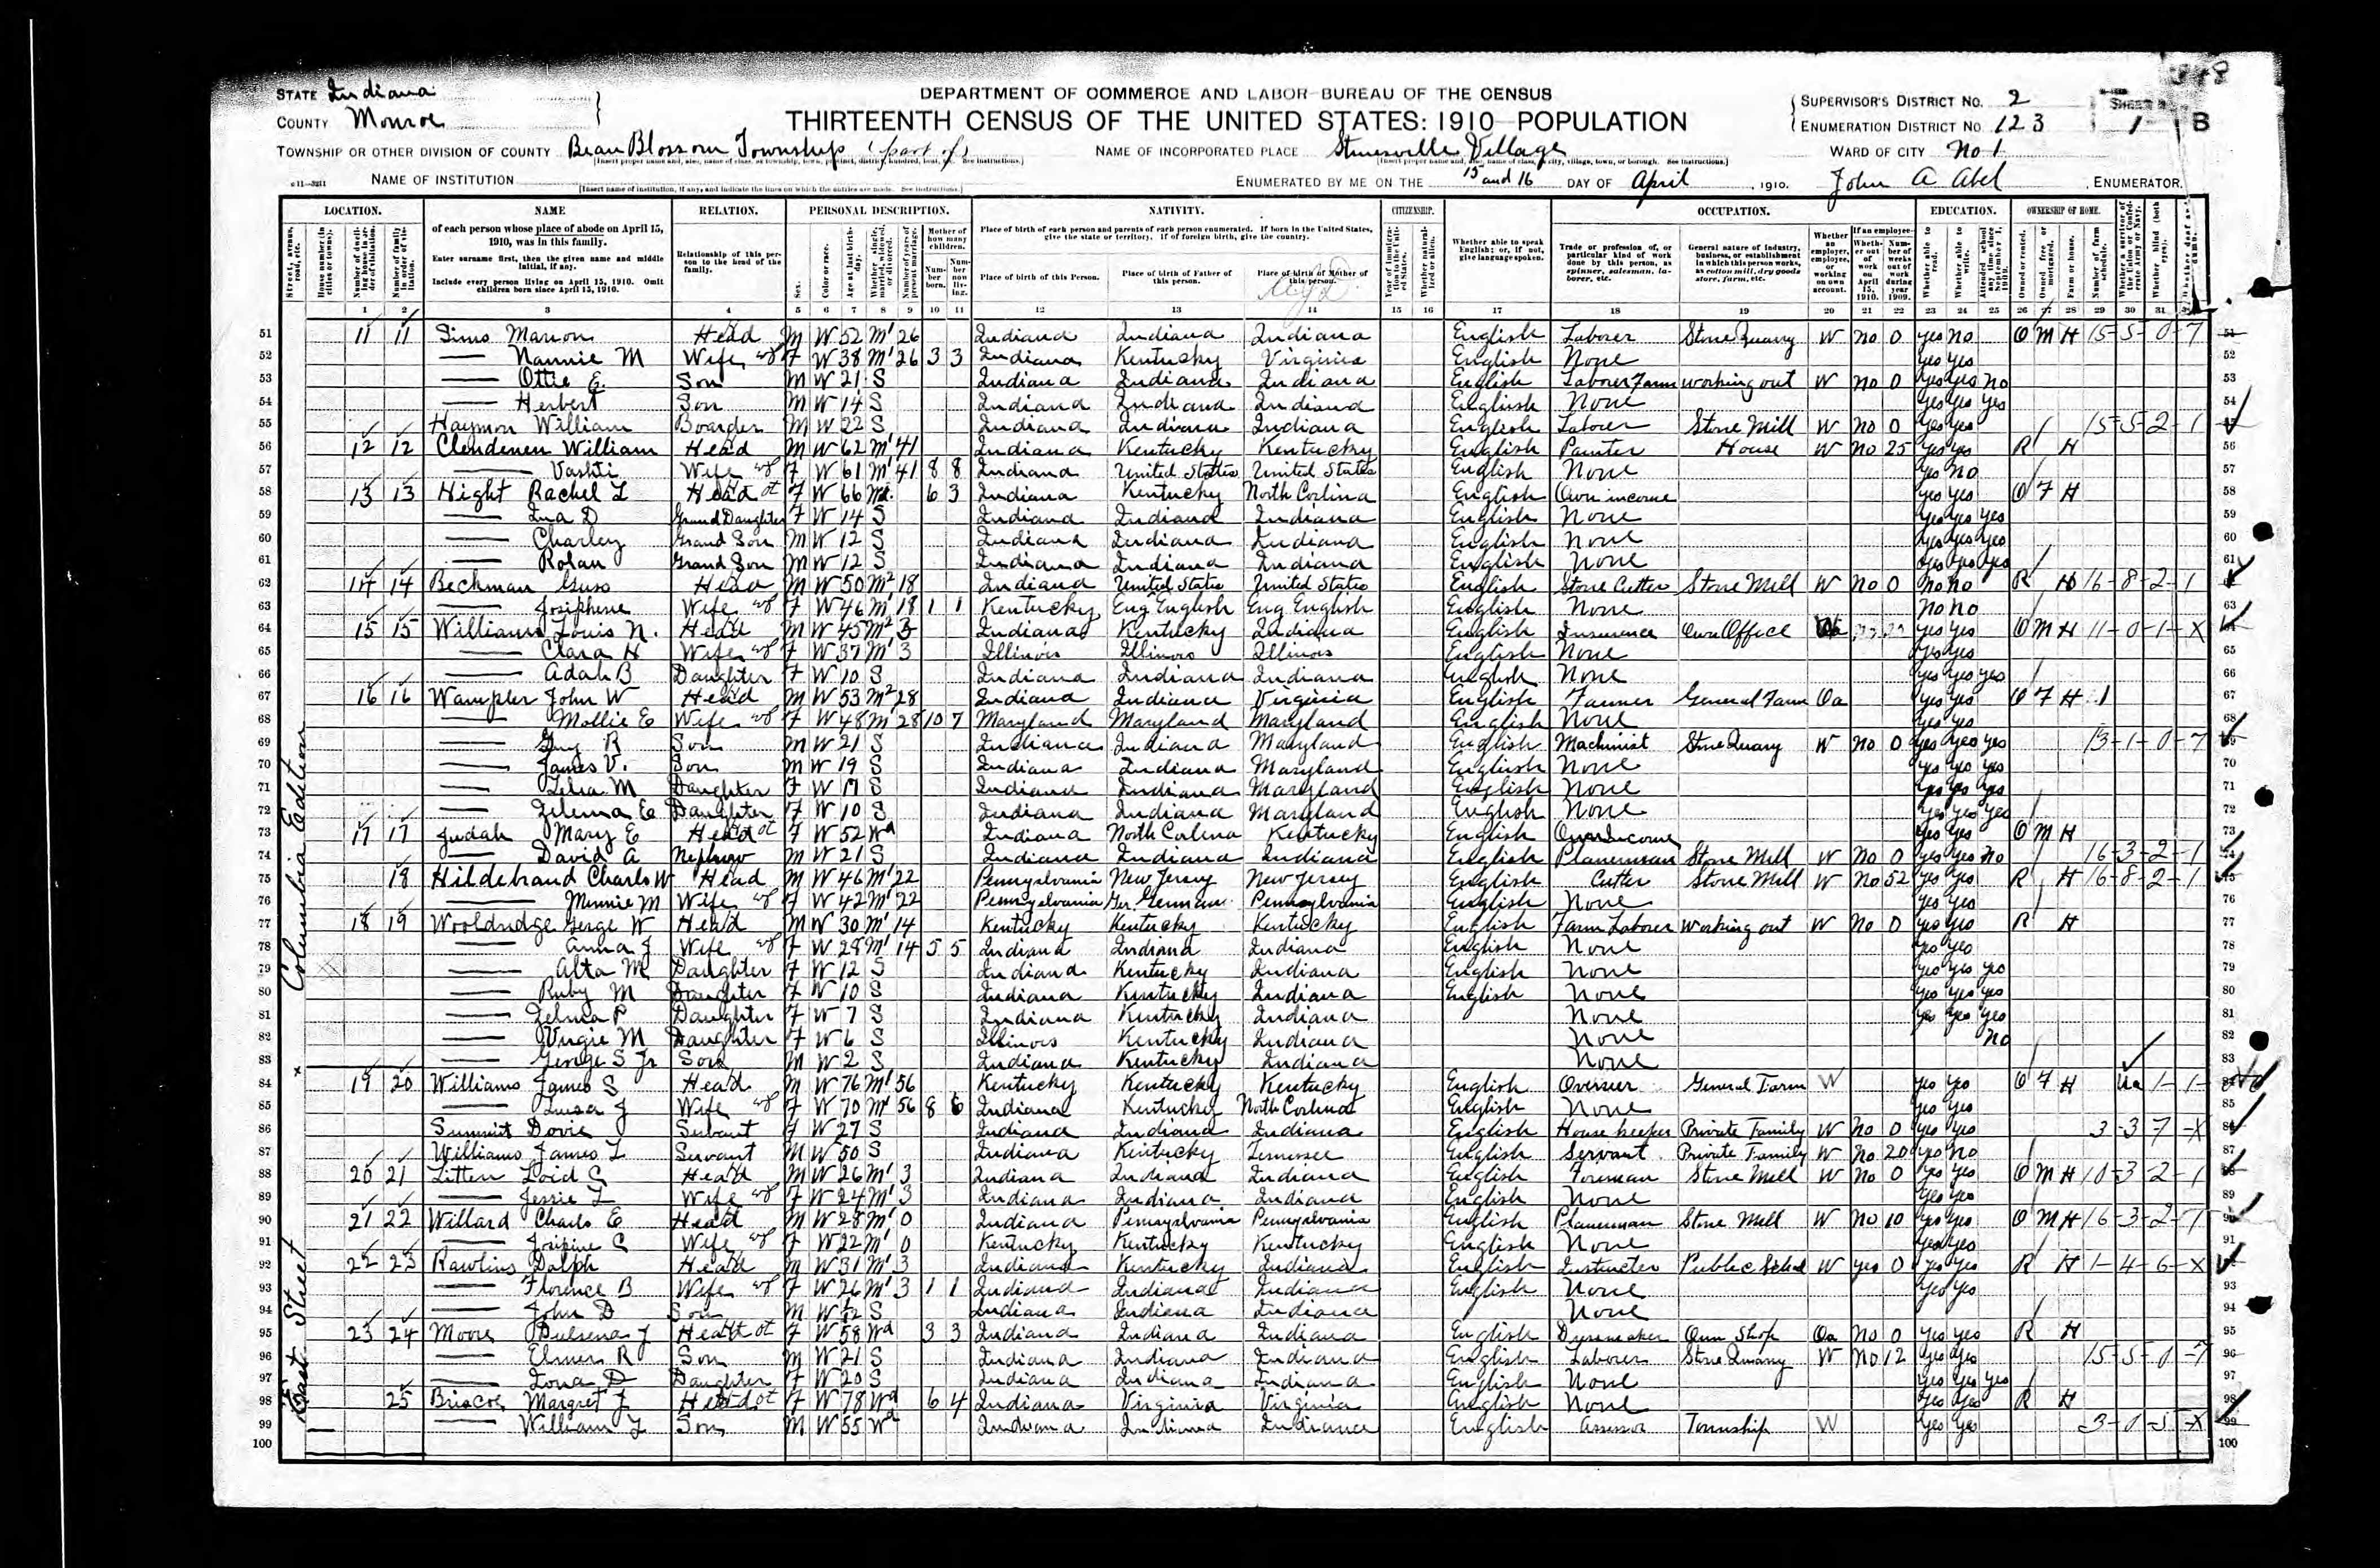 348
STATE Indiana
COUNTY Monroe
DEPARTMENT OF COMMERCE AND LABOR—BUREAU OF THE CENSUS
THIRTEENTH CENSUS OF THE UNITED STATES: 1910—POPULATION
SUPERVISOR'S DISTRICT NO. 2
ENUMERATION DISTRICT NO. 123
SHEET NO. 1 B
TOWNSHIP OR OTHER DIVISION OF COUNTY Bean Blossom Township (part of)
NAME OF INCORPORATED PLACE Stinesville Village
WARD OF CITY No 1
NAME OF INSTITUTION
ENUMERATED BY ME ON THE 15 and 16 DAY OF April, 1910. John A Abel, ENUMERATOR.
LOCATION. NAME RELATION. PERSONAL DESCRIPTION. NATIVITY. CITIZENSHIP. OCCUPATION. EDUCATION. OWNERSHIP OF HOME.
of each person whose place of abode on April 15, 1910, was in this family.
Enter surname first, then the given name and middle initial, if any.
Include every person living on April 15, 1910. Omit children born since April 15, 1910.
Relationship of this person to the head of the family.
Place of birth of each person and parents of each person enumerated. If born in the United States, give the state or territory. If of foreign birth, give the country.
Place of birth of this Person. Place of birth of Father of this person. Place of birth of Mother of this person.
Whether able to speak English; or, if not, give language spoken.
Trade or profession of, or particular kind of work done by this person, as spinner, salesman, laborer, etc.
General nature of industry, business, or establishment in which this person works, as cotton mill, dry goods store, farm, etc.
1 2 3 4 5 6 7 8 9 10 11 12 13 14 15 16 17 18 19 20 21 22 23 24 25 26 27 28 29 30 31
51 11 11 Sims Marion Head M W 52 M1 26 Indiana Indiana Indiana English Laborer Stone Quarry W No 0 yes no O M H 15-5-0-7
52 Nannie M Wife of F W 38 M1 26 3 3 Indiana Kentucky Virginia English None yes yes
53 Ottie E. Son M W 21 S Indiana Indiana Indiana English Laborer Farm working out W no 0 yes yes no
54 Herbert Son M W 14 S Indiana Indiana Indiana English None yes yes yes
55 Haymon William Boarder M W 22 S Indiana Indiana Indiana English Laborer Stone Mill W No 0 yes yes 15-5-2-1
56 12 12 Clendenen William Head M W 62 M1 41 Indiana Kentucky Kentucky English Painter House W No 25 yes yes R H
57 Vashti Wife of F W 61 M1 41 8 8 Indiana United States United States English None yes no
58 13 13 Hight Rachel L Head ot F W 66 Wd. 6 3 Indiana Kentucky North Corlina English Own income yes yes O F H
59 Ina D Grand Daughter F W 14 S Indiana Indiana Indiana English None yes yes yes
60 Charley Grand Son M W 12 S Indiana Indiana Indiana English None yes yes yes
61 Rolan Grand Son M W 12 S Indiana Indiana Indiana English None yes yes yes
62 14 14 Beckman Guss Head M W 50 M2 18 Indiana United States United States English Stone Cutter Stone Mill W No 0 no no R H 16-8-2-1
63 Josiphene Wife of F W 46 M1 18 1 1 Kentucky Eng English Eng English English None no no
64 15 15 Williams Louis N. Head M W 45 M2 3 Indiana Kentucky Indiana English Insurence Own Office Oa yes yes O M H 11-0-1-X
65 Clara H Wife of F W 37 M1 3 Illinois Illinois Illinois English None yes yes
66 Adah B Daughter F W 10 S Indiana Indiana Indiana English None yes yes yes
67 16 16 Wampler John W Head M W 53 M2 28 Indiana Indiana Virginia English Farmer General Farm Oa yes yes O F H 1
68 Mollie E Wife of F W 48 M1 28 10 7 Maryland Maryland Maryland English None yes yes
69 Guy R Son M W 21 S Indiana Indiana Maryland English Machinist Stone Quary W No 0 yes yes yes 13-1-0-7
70 James V. Son M W 19 S Indiana Indiana Maryland English None yes yes yes
71 M Daughter F W 17 S Indiana Indiana Maryland English None yes yes yes
72 Zelema E Daughter F W 10 S Indiana Indiana Maryland English None yes yes yes
73 17 17 Judah Mary E Head ot F W 52 Wd Indiana North Corlina Kentucky English Own Income yes yes O M H
74 David A Nephew M W 21 S Indiana Indiana Indiana English Planerman Stone Mill W No 0 yes yes no 16-3-2-1
75 18 Hildebrand Charls W Head M W 46 M1 22 Pennsylvania New Jersey New Jersey English Cutter Stone Mill W No 52 yes yes R H 16-8-2-1
76 Minnie M Wife of F W 42 M1 22 Pennsylvania Ger. German Pennsylvania English None yes yes
77 18 19 Wooldridge Gerge W Head M W 30 M1 14 Kentucky Kentucky Kentucky English Farm Laborer working out W No 0 yes yes R H
78 Anna J Wife of F W 28 M1 14 5 5 Indiana Indiana Indiana English None yes yes
79 Alta M Daughter F W 12 S Indiana Kentucky Indiana English None yes yes yes
80 Ruby M Daughter F W 10 S Indiana Kentucky Indiana English None yes yes yes
81 Zelma P Daughter F W 7 S Indiana Kentucky Indiana None yes yes yes
82 Virgie M Daughter F W 6 S Illinois Kentucky Indiana None no
83 George S Jr Son M W 2 S Indiana Kentucky Indiana None
84 19 20 Williams James S Head M W 76 M1 56 Kentucky Kentucky Kentucky English Overseer General Farm W yes yes O F H Ua 1-1
85 Luisa J Wife of F W 70 M1 56 8 6 Indiana Kentucky North Corlina English None yes yes
86 Summit Dovie Servant F W 27 S Indiana Indiana Indiana English House keeper Private Family W No 0 yes yes 3-3-7-X
87 Williams James L Servant M W 50 S Indiana Kentucky Tennessee English Servant Private Family W No 20 yes no
88 20 21 Litten Loid C Head M W 26 M1 3 Indiana Indiana Indiana English Foreman Stone Mill W No 0 yes yes O M H 10-3-2-1
89 Jessie L Wife of F W 24 M1 3 Indiana Indiana Indiana English None yes yes
90 21 22 Willard Charls E Head M W 28 M1 0 Indiana Pennsylvania Pennsylvania English Planerman Stone Mill W No 10 yes yes O M H 16-3-2-1
91 Josipine C Wife of F W 22 M1 0 Kentucky Kentucky Kentucky English None yes yes
92 22 23 Rawlins Dolph Head M W 31 M1 3 Indiana Kentucky Indiana English Instructor Public School W yes 0 yes yes R H 1-4-6-X
93 Florence B Wife of F W 26 M1 3 1 1 Indiana Indiana Indiana English None yes yes
94 John D Son M W S Indiana Indiana Indiana None
95 23 24 Moore J Head ot F W 58 Wd 3 3 Indiana Indiana Indiana English Dressmaker Own Shop Oa No 0 yes yes R H
96 Elmer R Son M W 21 S Indiana Indiana Indiana English Laborer Stone Quarry W No 12 yes yes 15-5-0-7
97 Iona D Daughter F W 20 S Indiana Indiana Indiana English None yes yes yes
98 25 Briscoe Margret J Head ot F W 78 Wd 6 4 Indiana Virginia Virginia English None yes yes R H
99 William L Son M W 55 Wd Indiana Indiana Indiana English Assessor Township W yes yes 3-0-5-X
100
Columbia Edition
East Street